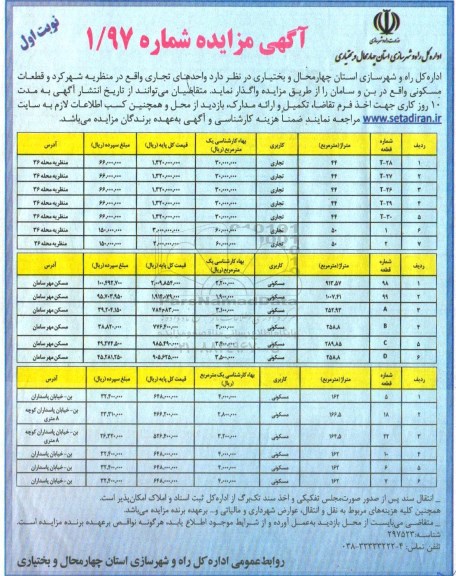 نوبت اول
آگهی مزایده شماره ۱/۹۷
اداره کل راه و شهرسازی استان چهارمحال و بختیاری
اداره کل راه و شهرسازی استان چهارمحال و بختیاری در نظر دارد واحدهای تجاری واقع در منظریه شهرکرد و قطعات
مسکونی واقع در بن و سامان را از طریق مزایده واگذار نماید. متقاضیان می‌توانند از تاریخ انتشار آگهی به مدت
۱۰ روز کاری جهت اخذ فرم تقاضا، تکمیل و ارائه مدارک، بازدید از محل و همچنین کسب اطلاعات لازم به سایت
www.setadiran.ir مراجعه نمایند ضمناً هزینه کارشناسی و آگهی به‌عهده برندگان مزایده می‌باشد.
ردیف شماره قطعه متراژ (مترمربع) کاربری بهاء کارشناسی یک مترمربع (ریال) قیمت کل پایه (ریال) مبلغ سپرده (ریال) آدرس
۱ T-۲۸ ۴۴ تجاری ۳۰,۰۰۰,۰۰۰ ۱,۳۲۰,۰۰۰,۰۰۰ ۶۶,۰۰۰,۰۰۰ منظریه محله ۳۶
۲ T-۲۷ ۴۴ تجاری ۳۰,۰۰۰,۰۰۰ ۱,۳۲۰,۰۰۰,۰۰۰ ۶۶,۰۰۰,۰۰۰ منظریه محله ۳۶
۳ T-۲۶ ۴۴ تجاری ۳۰,۰۰۰,۰۰۰ ۱,۳۲۰,۰۰۰,۰۰۰ ۶۶,۰۰۰,۰۰۰ منظریه محله ۳۶
۴ T-۲۹ ۴۴ تجاری ۳۰,۰۰۰,۰۰۰ ۱,۳۲۰,۰۰۰,۰۰۰ ۶۶,۰۰۰,۰۰۰ منظریه محله ۳۶
۵ T-۳۰ ۴۴ تجاری ۳۰,۰۰۰,۰۰۰ ۱,۳۲۰,۰۰۰,۰۰۰ ۶۶,۰۰۰,۰۰۰ منظریه محله ۳۶
۶ ۱ ۵۰ تجاری ۶۰,۰۰۰,۰۰۰ ۳,۰۰۰,۰۰۰,۰۰۰ ۱۵۰,۰۰۰,۰۰۰ منظریه محله ۳۶
۷ ۲ ۵۰ تجاری ۶۰,۰۰۰,۰۰۰ ۳,۰۰۰,۰۰۰,۰۰۰ ۱۵۰,۰۰۰,۰۰۰ منظریه محله ۳۶
ردیف شماره قطعه متراژ (مترمربع) کاربری بهاء کارشناسی یک مترمربع (ریال) قیمت کل پایه (ریال) مبلغ سپرده (ریال) آدرس
۱ ۹۸ ۹۱۳.۵۷ مسکونی ۲,۲۰۰,۰۰۰ ۲,۰۰۹,۸۵۴,۰۰۰ ۱۰۰,۴۹۲,۷۰۰ مسکن مهر سامان
۲ ۹۹ ۱۰۰۷.۴۱ مسکونی ۱,۹۰۰,۰۰۰ مسکن مهر سامان
۳ A ۲۵۲.۹۳ مسکونی ۳,۱۰۰,۰۰۰ مسکن مهر سامان
۴ B ۲۵۸.۸ مسکونی ۳,۰۰۰,۰۰۰ ۷۷۶,۴۰۰,۰۰۰ ۳۸,۸۲۰,۰۰۰ مسکن مهر سامان
۵ C ۲۸۹.۸۵ مسکونی ۳,۴۰۰,۰۰۰ ۹۸۵,۴۹۰,۰۰۰ مسکن مهر سامان
۶ D ۲۵۸.۸ مسکونی ۳,۵۰۰,۰۰۰ مسکن مهر سامان
ردیف شماره قطعه متراژ (مترمربع) کاربری بهاء کارشناسی یک مترمربع (ریال) قیمت کل پایه (ریال) مبلغ سپرده (ریال) آدرس
۱ ۵ ۱۶۲ مسکونی ۴,۰۰۰,۰۰۰ ۶۴۸,۰۰۰,۰۰۰ ۳۲,۴۰۰,۰۰۰ بن - خیابان پاسداران
۲ ۱۸ ۱۶۶.۵ مسکونی ۲,۸۰۰,۰۰۰ ۴۶۶,۲۰۰,۰۰۰ ۲۳,۳۱۰,۰۰۰ بن - خیابان پاسداران کوچه ۸ متری
۳ ۲۲ ۱۶۴.۵ مسکونی ۳,۲۰۰,۰۰۰ ۵۲۶,۴۰۰,۰۰۰ ۲۶,۳۲۰,۰۰۰ بن - خیابان پاسداران کوچه ۸ متری
۴ ۱۰ ۱۶۲ مسکونی ۴,۰۰۰,۰۰۰ ۶۴۸,۰۰۰,۰۰۰ ۳۲,۴۰۰,۰۰۰ بن - خیابان پاسداران
۵ ۶ ۱۶۲ مسکونی ۴,۰۰۰,۰۰۰ ۶۴۸,۰۰۰,۰۰۰ ۳۲,۴۰۰,۰۰۰ بن - خیابان پاسداران
۶ ۷ ۱۶۲ مسکونی ۴,۰۰۰,۰۰۰ ۶۴۸,۰۰۰,۰۰۰ ۳۲,۴۰۰,۰۰۰ بن - خیابان پاسداران
_ انتقال سند پس از صدور صورت‌مجلس تفکیکی و اخذ سند تک‌برگ از اداره کل ثبت اسناد و املاک امکان‌پذیر است.
همچنین کلیه هزینه‌های مربوط به نقل و انتقال، عوارض شهرداری و مالیاتی و... برعهده برنده مزایده می‌باشد.
_ متقاضی می‌بایست از محل بازدید به‌عمل آورده و از شرایط موجود اطلاع یابد، هرگونه نواقص برعهده برنده مزایده است.
شناسه: ۲۹۷۵۲۳
تلفن تماس: ۰۳۸-۳۳۳۳۲۲۲۰۴
روابط عمومی اداره کل راه و شهرسازی استان چهارمحال و بختیاری